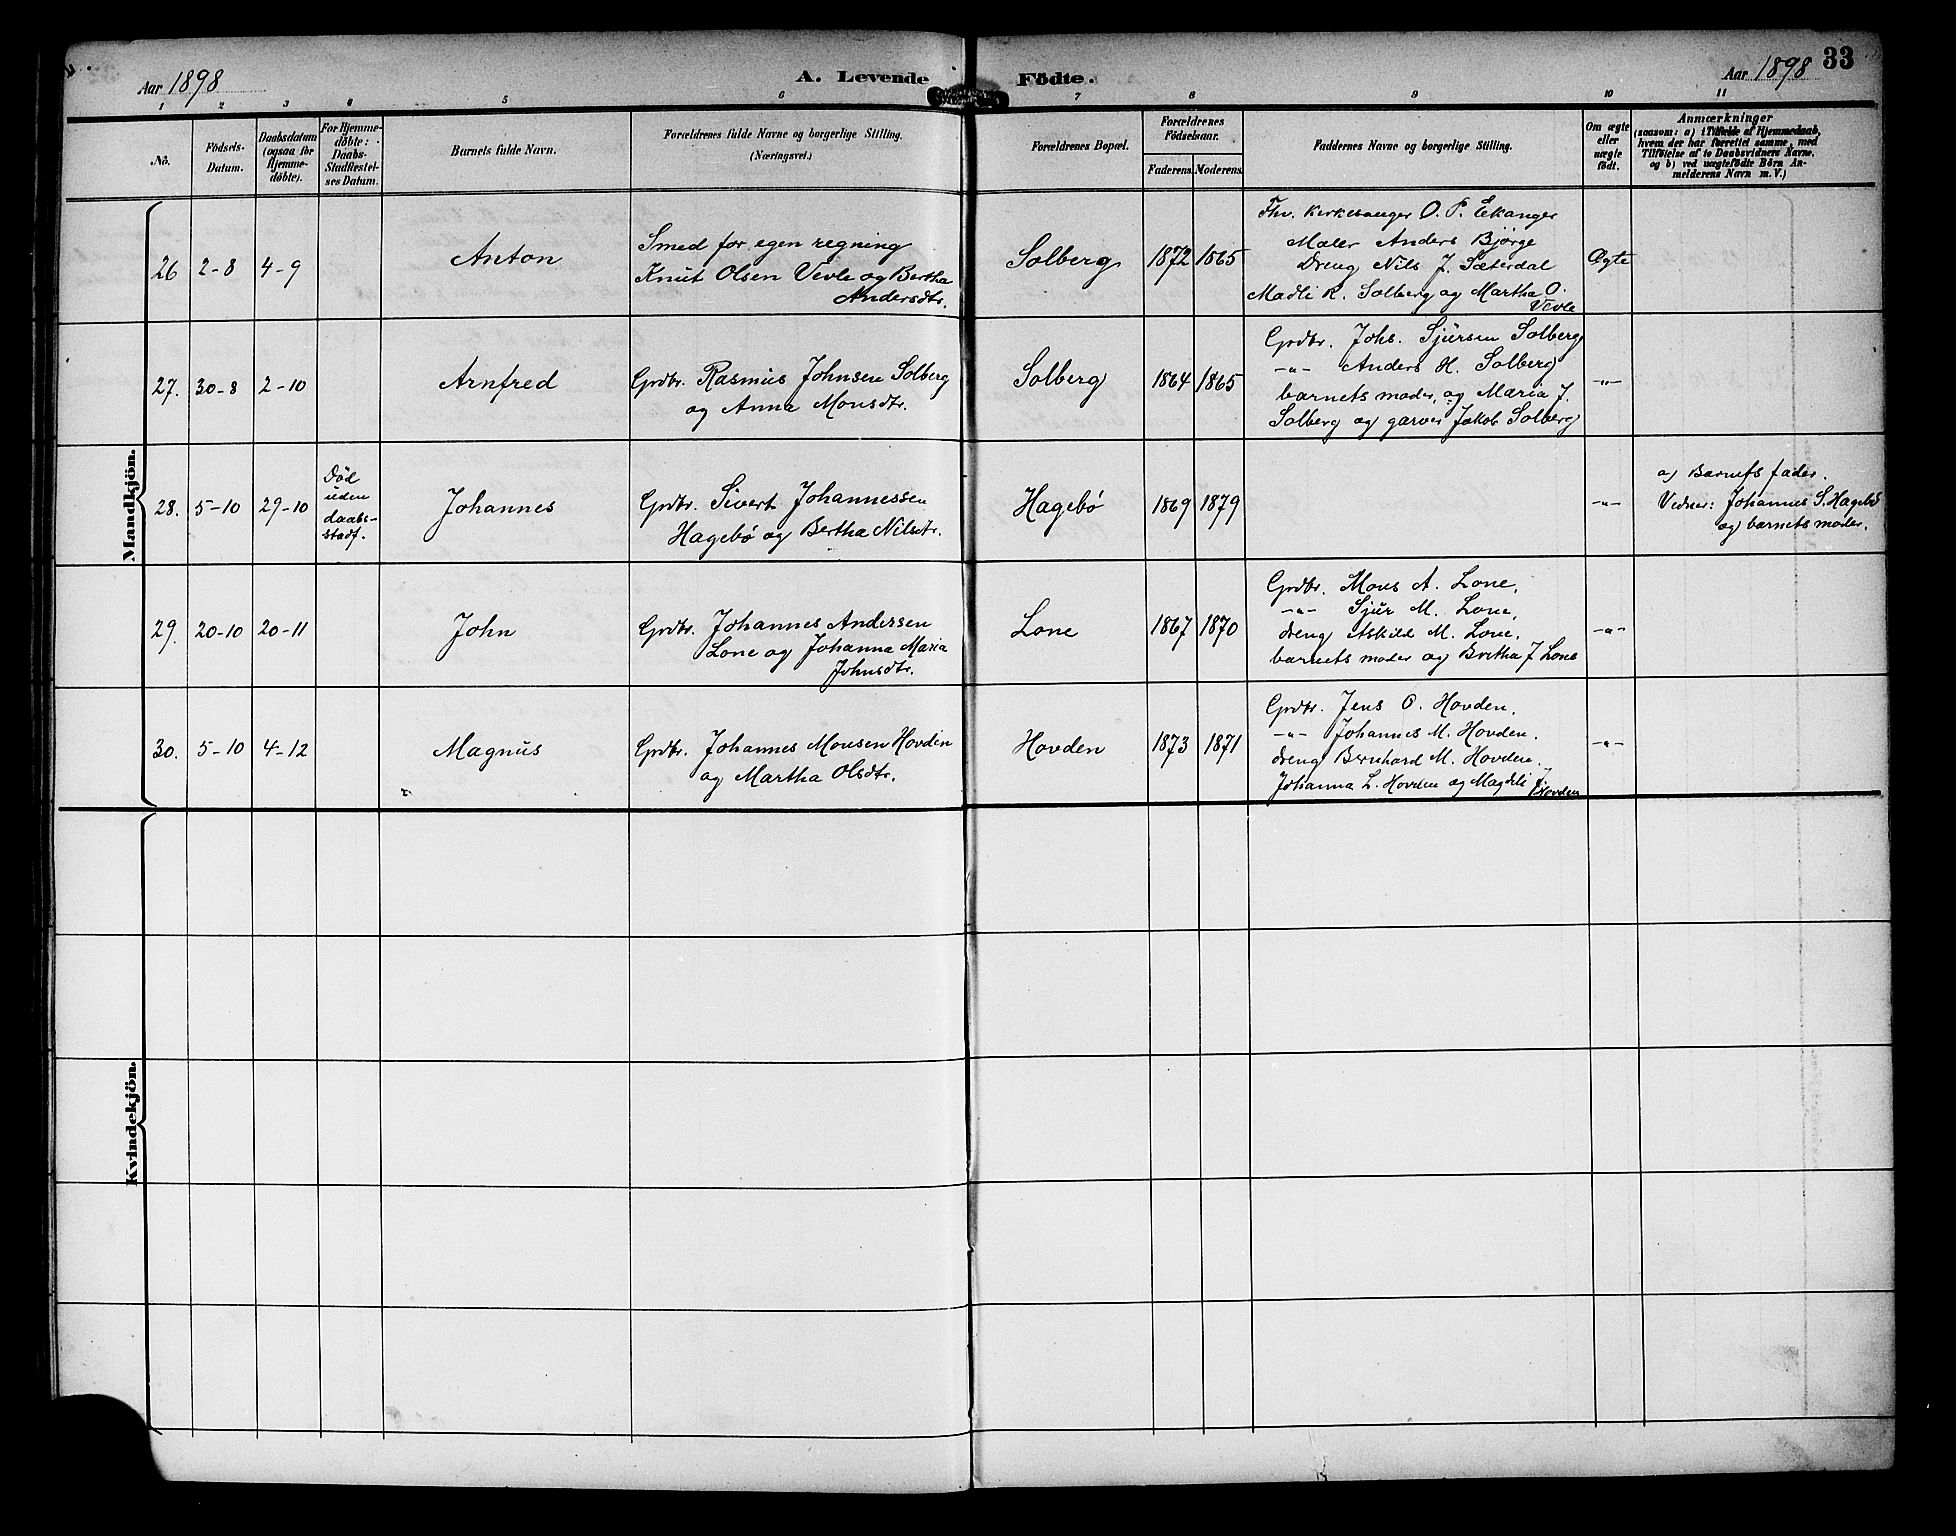 Aar 1898
A. Levende Födte.
Aar 1898
33
1 2 3 4 5 6 7 8 9 10 11
No.
Födsels-
Datum.
Daabsdatum
(ogsaa for
Hjemme-
döbte).
For Hjemme-
döbte:
Daabs-
Stadfæstel-
ses Datum.
Barnets fulde Navn.
Forældrenes fulde Navne og borgerlige Stilling.
(Næringsvei.)
Forældrenes Bopæl.
Forældrenes
Födselsaar.
Faderens. Moderens.
Faddernes Navne og borgerlige Stilling.
Om ægte
eller
uægte
födt.
Anmærkninger
(saasom: a) i Tilfælde af Hjemmedaab,
hvem der har forrettet samme, med
Tilföielse af to Daabsvidners Navne,
og b) ved uægtefödte Börn An-
melderens Navn m. V.)
Mandkjön.
26 2-8 4-9
Anton
Smed for egen regning
Knut Olsen Vevle og Bertha
Andersdtr.
Solberg
1872 1865
Fhv. Kirkesanger O. P. Ekanger
Maler Anders Bjørge
Dreng Nils J. Sæterdal
Madli R. Solberg og Martha O.
Vevle
Ægte
27. 30-8 2-10
Arnfred
Grdbr. Rasmus Johnsen Solberg
og Anna Monsdtr.
Solberg
1864 1865
Grdbr. Johs. Sjursen Solberg
-"- Anders H. Solberg
barnets moder, og Maria J.
Solberg og garver Jakob Solberg
-"-
28. 5-10 29-10
Død
uden
daabs-
stadf.
Johannes
Grdbr. Sivert Johannessen
Hagebø og Bertha Nilsdtr.
Hagebø
1869 1879
-"-
a) Barnets fader.
Vidner: Johannes S. Hagebø
og barnets moder.
29. 20-10 20-11
John
Grdbr. Johannes Andersen
Lone og Johanna Maria
Johnsdtr.
Lone
1867 1870
Grdbr. Mons A. Lone,
-"- Sjur M. Lone,
dreng Askild M. Lone,
barnets moder og Britha J Lone
-"-
30. 5-10 4-12
Magnus
Grdbr. Johannes Monsen Hovden
og Martha Olsdtr.
Hovden
1873 1871
Grdbr. Jens O. Hovden.
-"- Johannes M. Hovden.
dreng Bernhard M. Hovden.
Johanna L. Hovden og Magdeli J.
Hovden
-"-
Kvindekjön.